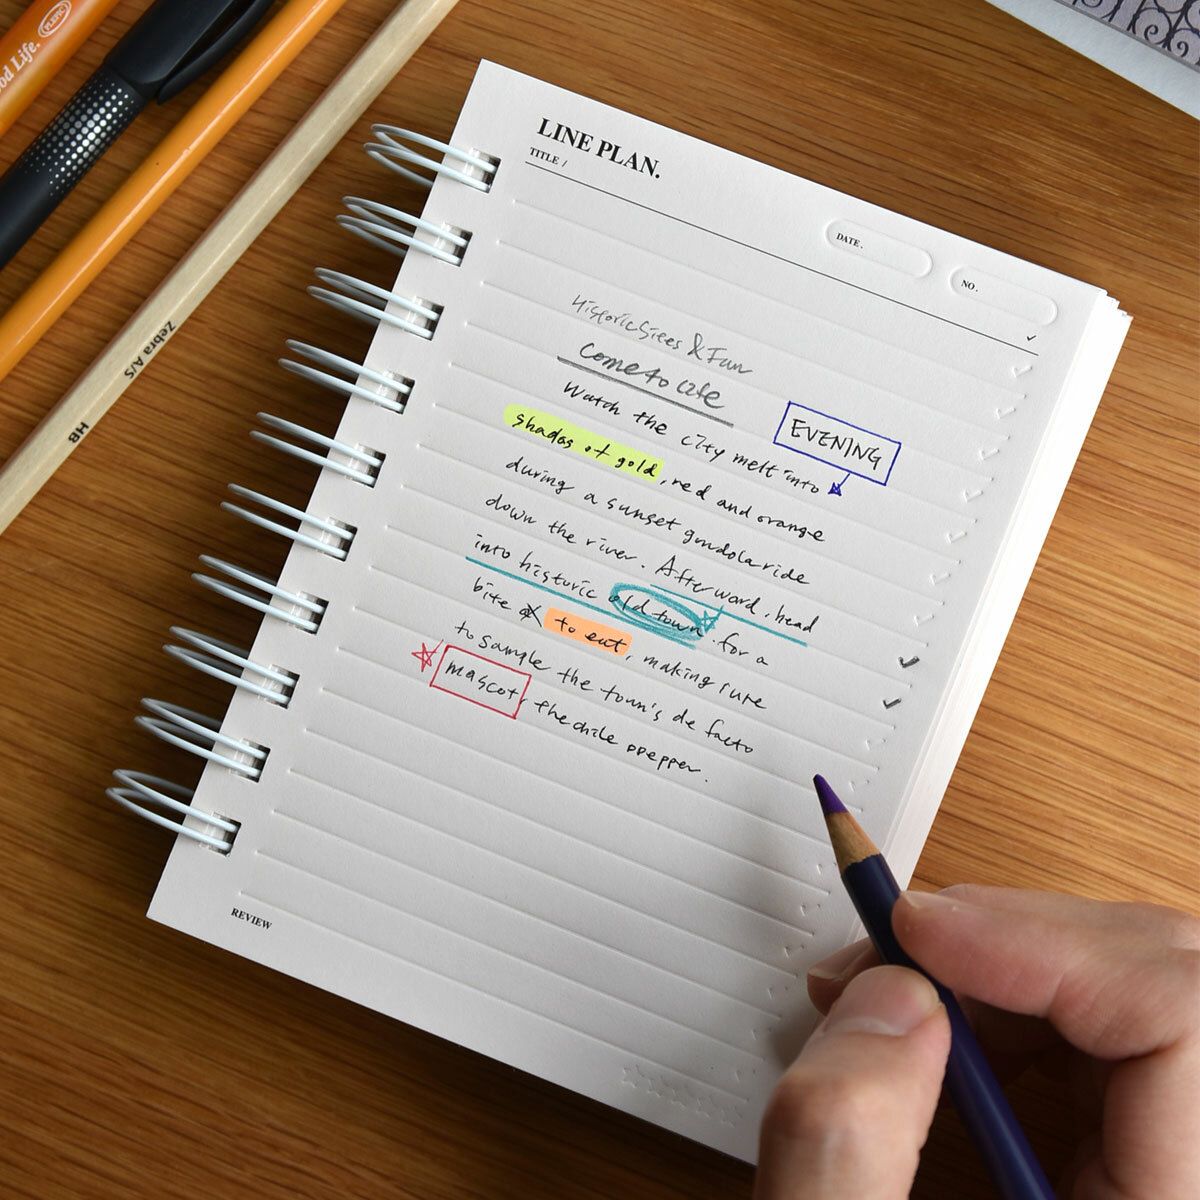 PLEPIC
od Life.
Zebra A/S
HB
LINE PLAN.
TITLE /
DATE.
NO.
Historic Sites & Fun
Come to Life
Watch the city melt into
EVENING
shados of gold, red and orange
during a sunset gondola ride
down the river. Afterword, head
into historic old town. for a
bite to eat, making sure
to sample the town's de facto
mascot, the chile ppepper.
REVIEW